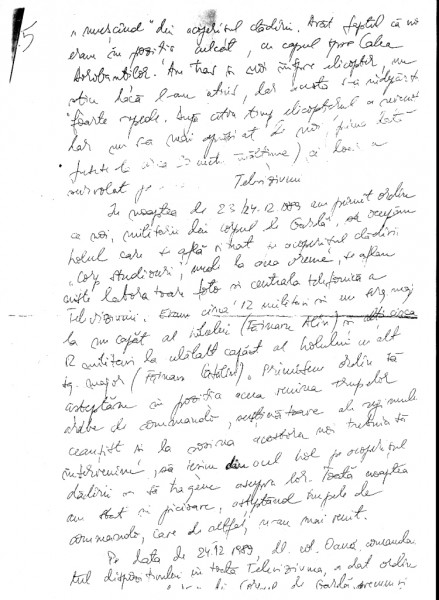 5
" din acoperișul clădirii. Arăt faptul că noi
eram în poziția culcat, cu capul spre Calea
Dorobanților. Am tras și noi înspre elicopter, nu
știu dacă l-am atins, dar acesta s-a îndepărtat
foarte repede. După câtva timp elicopterul a revenit
dar nu s-a mai apropiat de noi (prima dată
fusese la circa 15 metri înălțime) ci doar a
survolat Televiziunea
În noaptea de 23/24.12.1989 am primit ordin
ca noi, militarii din corpul de Gardă, să ocupăm
holul care se află situat pe acoperișul clădirii
"Corp studiouri", unde la acea vreme, se aflau
niște laboratoare foto și centrala telefonică a
Televiziunii. Eram circa 12 militari și un serg. maj.
la un capăt al holului (Fornaru Alin) și alți circa
12 militari la celălalt capăt al holului cu alt
sg. major (Fornaru Cătălin). Primisem ordin să
așteptăm în poziția aceea venirea trupelor
arabe de comando, susținătoare ale regimului
ceaușist și la sosirea acestora noi trebuia să
intervenim, să ieșim din acel hol pe acoperișul
clădirii și să tragem asupra lor. Toată noaptea
am stat în picioare, așteptând trupele de
comando, care de altfel, n-au mai venit.
Pe data de 24.12.1989, dl. col. Oancă, comandan
tul dispozitivului din toată Televiziunea, a dat ordin
de Gardă